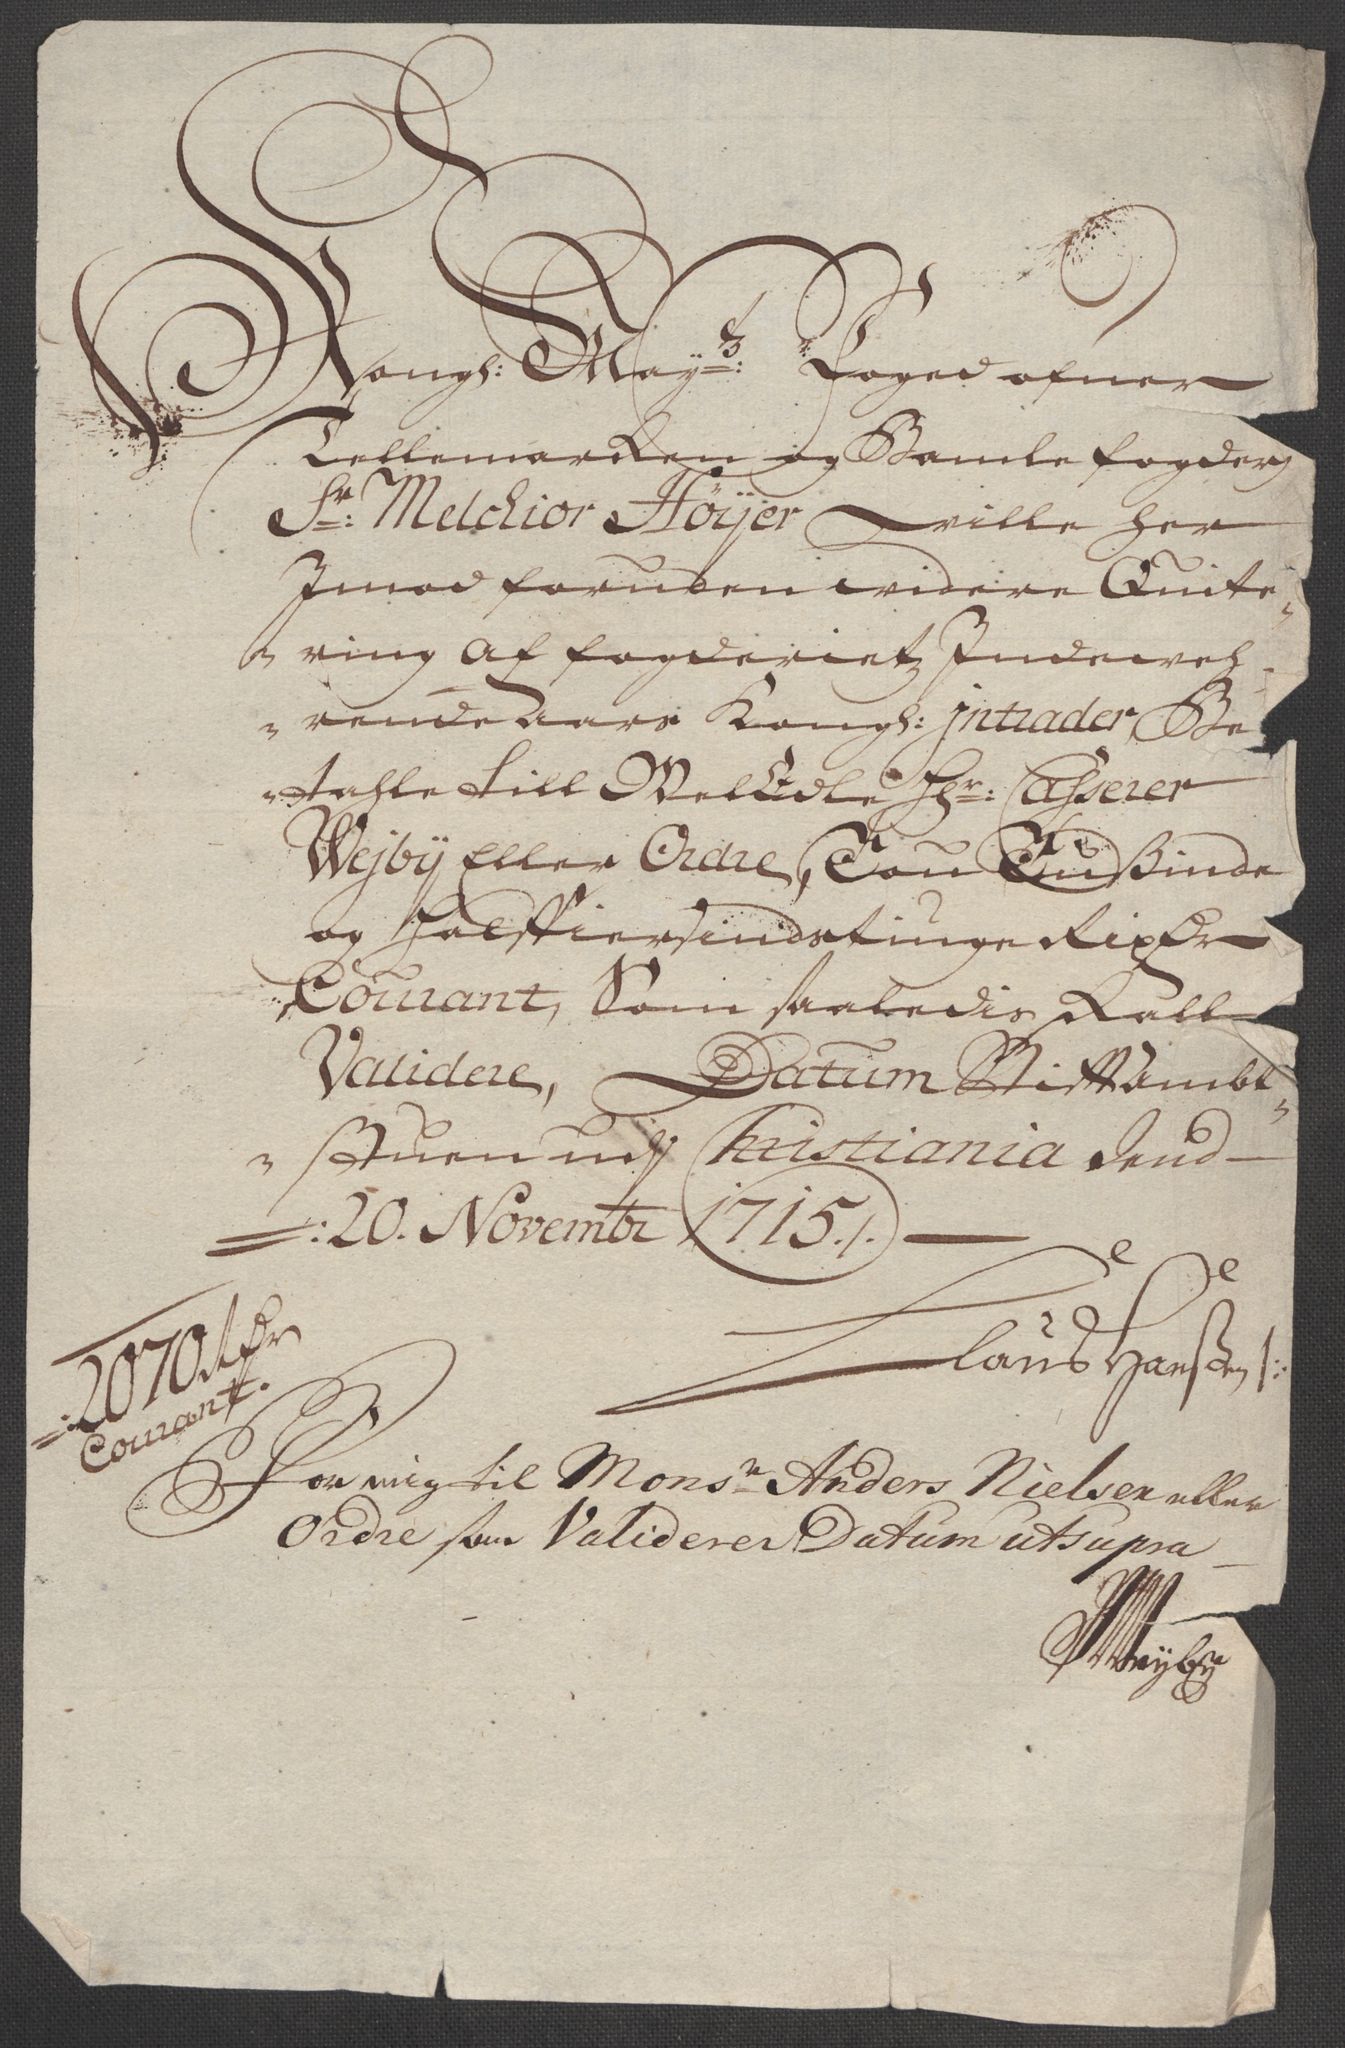 Kongl: May:ts Foged ofver
Tellemarken og Bamle fogderj
Sr: Melchior Höÿer Wille her
Imod foruden widere Quite-
-ring af fogderietz Indeweh-
-rende Aars Kongl: Intrader, Be-
-tahle till WelEdle Hr: Casserer
Wejbÿ Eller Ordre, Tou Tußinde
og Halffiersindstiuge Rixdr
Courant, Som saaledis skall
Validere, Datum Stiftambt-
-stuen udj Christiania dend
20. Novembr 1715.
Claus Hanßen
2070 Rdr
Courant.
For mig til Monsr Anders Nielsen eller
Ordre som Validerer Datum ut supra
Weÿbÿe